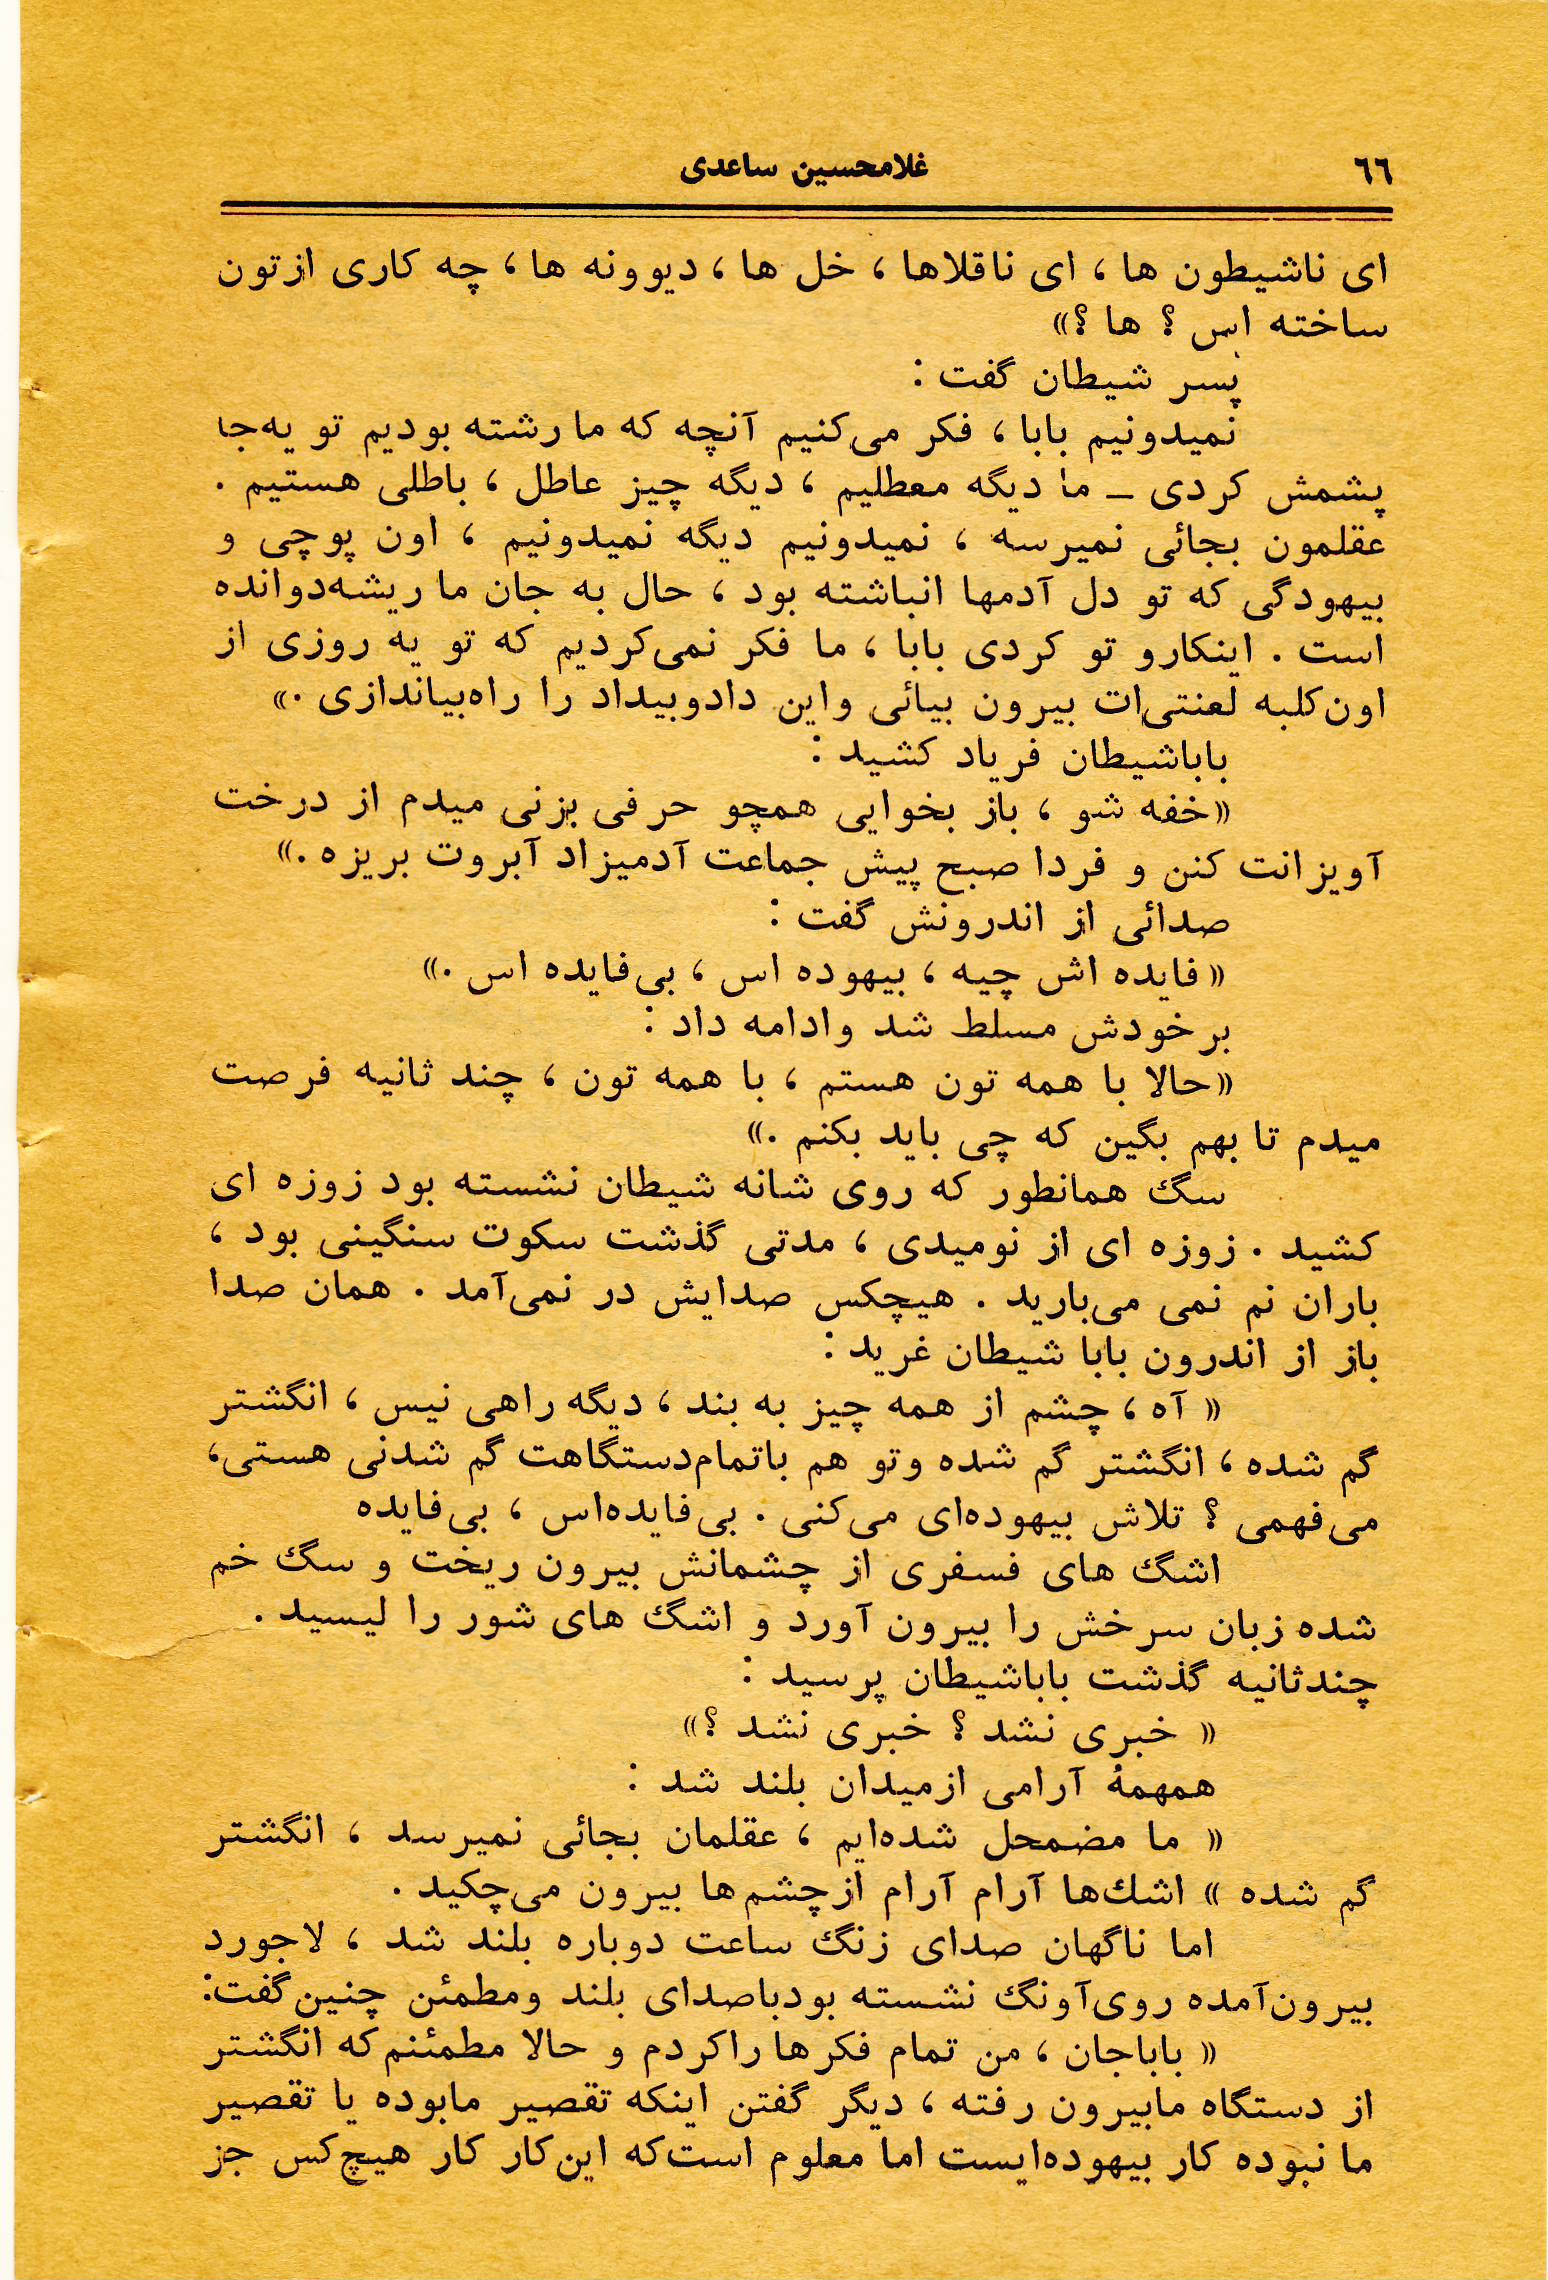 ٦٦
غلامحسین ساعدی
ای ناشیطون ها ، ای ناقلاها ، خل ها ، دیوونه ها ، چه کاری ازتون
ساخته اس ؟ ها ؟»
پسر شیطان گفت :
نمیدونیم بابا ، فکر می‌کنیم آنچه که ما رشته بودیم تو یه‌جا
پشمش کردی ـ ما دیگه معطلیم ، دیگه چیز عاطل ، باطلی هستیم .
عقلمون بجائی نمیرسه ، نمیدونیم دیگه نمیدونیم ، اون پوچی و
بیهودگی که تو دل آدمها انباشته بود ، حال به جان ما ریشه‌دوانده
است . اینکارو تو کردی بابا ، ما فکر نمی‌کردیم که تو یه روزی از
اون‌کلبه لعنتی‌ات بیرون بیائی و این دادوبیداد را راه‌بیاندازی .»
باباشیطان فریاد کشید :
«خفه شو ، باز بخوایی همچو حرفی بزنی میدم از درخت
آویزانت کنن و فردا صبح پیش جماعت آدمیزاد آبروت بریزه .»
صدائی از اندرونش گفت :
« فایده اش چیه ، بیهوده اس ، بی‌فایده اس .»
برخودش مسلط شد و ادامه داد :
«حالا با همه تون هستم ، با همه تون ، چند ثانیه فرصت
میدم تا بهم بگین که چی باید بکنم .»
سگ همانطور که روی شانه شیطان نشسته بود زوزه ای
کشید . زوزه ای از نومیدی ، مدتی گذشت سکوت سنگینی بود ،
باران نم نمی می‌بارید . هیچکس صدایش در نمی‌آمد . همان صدا
باز از اندرون بابا شیطان غرید :
« آه ، چشم از همه چیز به بند ، دیگه راهی نیس ، انگشتر
گم شده ، انگشتر گم شده و تو هم باتمام‌دستگاهت گم شدنی هستی،
می‌فهمی ؟ تلاش بیهوده‌ای می‌کنی . بی‌فایده‌اس ، بی‌فایده
اشگ های فسفری از چشمانش بیرون ریخت و سگ خم
شده زبان سرخش را بیرون آورد و اشگ های شور را لیسید .
چندثانیه گذشت باباشیطان پرسید :
« خبری نشد ؟ خبری نشد ؟»
همهمهٔ آرامی ازمیدان بلند شد :
« ما مضمحل شده‌ایم ، عقلمان بجائی نمیرسد ، انگشتر
گم شده » اشک‌ها آرام آرام ازچشم‌ها بیرون می‌چکید .
اما ناگهان صدای زنگ ساعت دوباره بلند شد ، لاجورد
بیرون‌آمده روی‌آونگ نشسته بودباصدای بلند ومطمئن چنین‌گفت:
« باباجان ، من تمام فکرها راکردم و حالا مطمئنم‌که انگشتر
از دستگاه مابیرون رفته ، دیگر گفتن اینکه تقصیر مابوده یا تقصیر
ما نبوده کار بیهوده‌ایست اما معلوم است‌که این‌کار کار هیچ‌کس جز